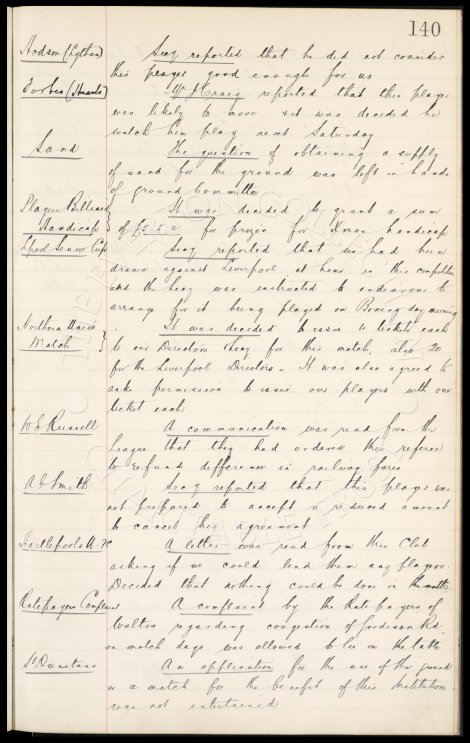 140
Hodson (Lytham) Secy reported that he did not consider
this player good enough for us
Forbes (Hearts) Mr J Craig reported that this player
was likely to move & it was decided to
watch him play next Saturday
Sand The question of obtaining a supply
of sand for the ground was left in hands
of Ground Committee
Players Billiard Handicap } It was decided to grant a sum
of £5.5.0 for prizes for Xmas handicap
Lpool Senior Cup Secy reported that we had been
drawn against Liverpool at home in this competition
and the Secy was instructed to endeavour to
arrange for it being played on Boxing day morning
Northern Union Match } It was decided to issue 4 tickets each
to our Directors & Secy for this match, also 20
for the Liverpool Directors - It was also agreed to
ask permission to issue our players with one
ticket each
W E Russell A communication was read from the
League that they had ordered this referee
to refund difference in railway fares
A E Smith Secy reported that this player was
not prepared to accept a reduced amount
to cancel his agreement
Hartlepools U. FC A letter was read from this Club
asking if we could lend them any players.
Decided that nothing could be done in the matter.
Ratepayers Complaint A complaint by the Rate payers of
Walton regarding congestion of Goodison Rd.
on match days was allowed to lie on the table
St Dunstans An application for the use of the ground
or a match for the benefit of this Institution
was not entertained